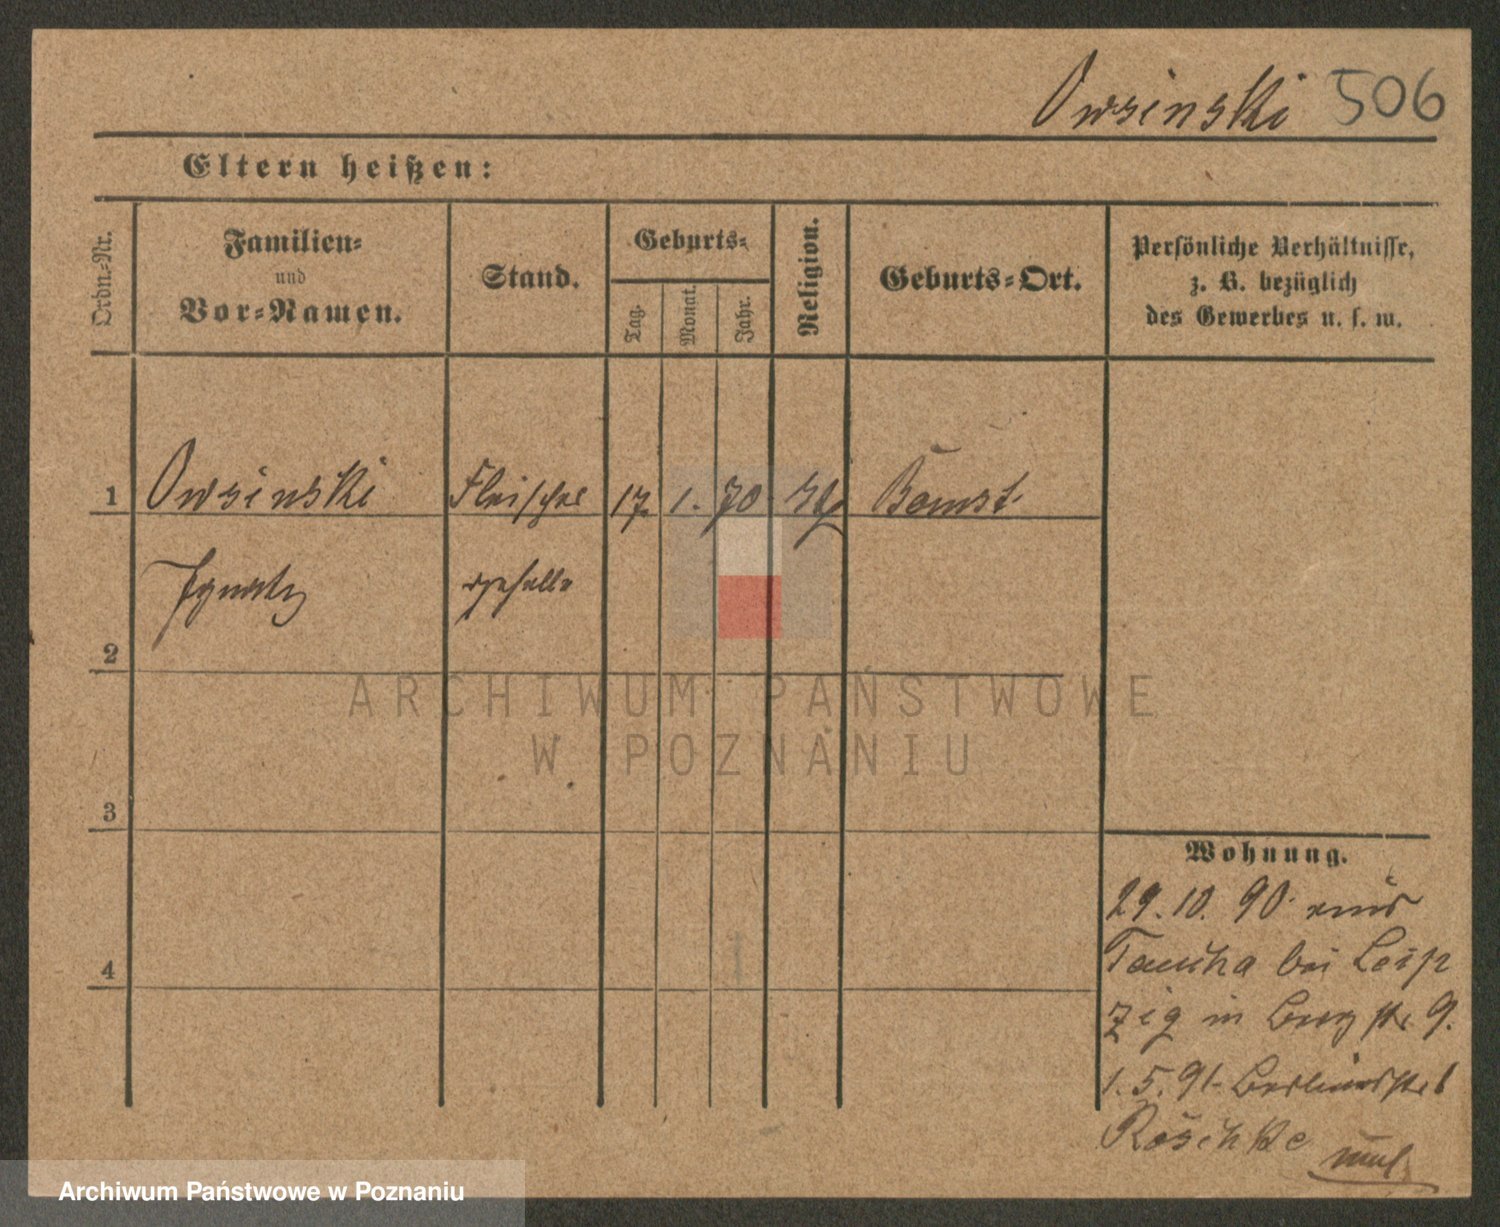 Owsinski 506
Eltern heißen:
Ordn.=Nr.
Familien=
und
Vor=Namen.
Stand.
Geburts=
Tag.
Monat.
Jahr.
Religion.
Geburts=Ort.
Persönliche Verhältnisse,
z. B. bezüglich
des Gewerbes u. s. w.
1 Owsinski Fleischer 17. 1. 70 Bomst
Ignatz geselle
2
ARCHIWUM PAŃSTWOWE
W POZNANIU
3
Wohnung.
29. 10. 90 aus
Taucha bei Leip
4
zig in Burgstr 9.
1. 5. 91 Berlinerstr 6
Röschke
Archiwum Państwowe w Poznaniu